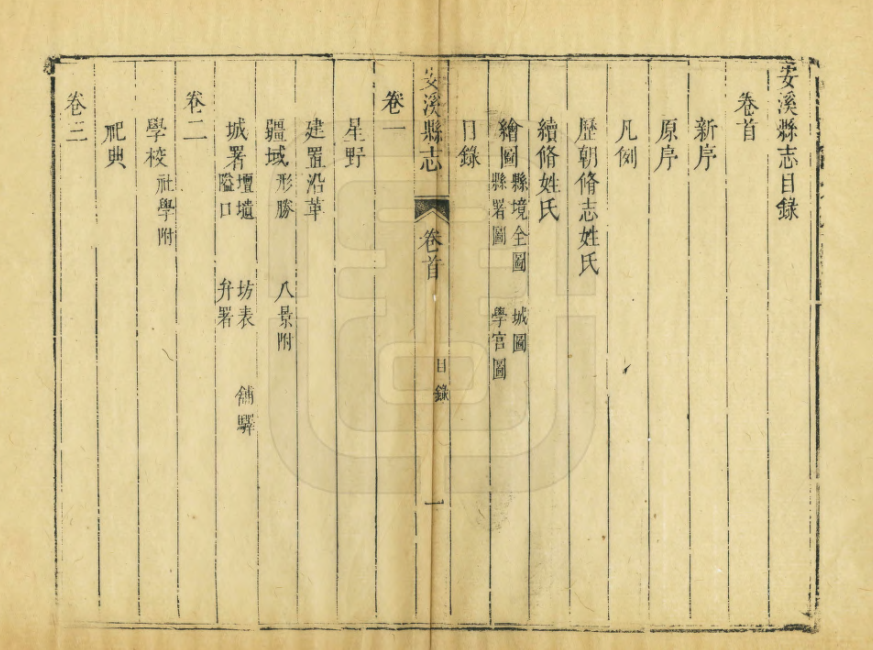 安溪縣志目錄
卷首
新序
原序
凡例
歷朝脩志姓氏
續脩姓氏
繪圖 縣境全圖 城圖 縣署圖 學宮圖
目錄
安溪縣志 卷首 目錄 一
卷一
星野
建置沿革
疆域 形勝 八景附
城署 壇壝 坊表 舖驛 隘口 弁署
卷二
學校 社學附
祀典
卷三